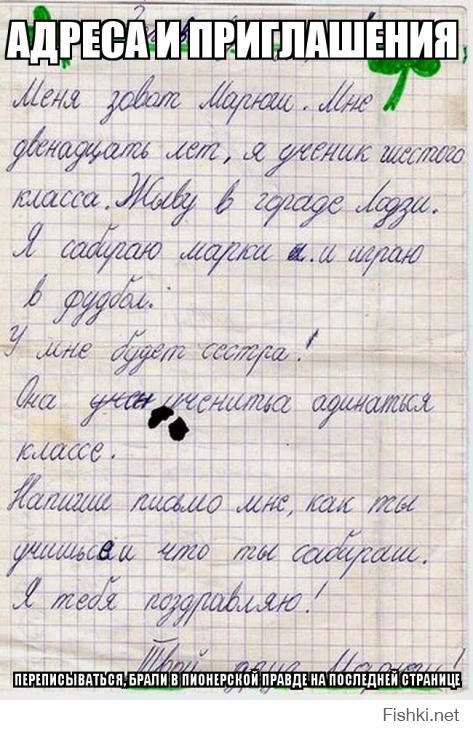 АДРЕСА И ПРИГЛАШЕНИЯ
Меня зоват Марюш. Мне
двенадцать лет, я ученик шестого
класса. Жыву в городе Лодзи.
Я сабираю марки и. и играю
в фудбол.
У мне будет сестра!
Она учен ученитьса адинаться
классе.
Напиши письмо мне, как ты
учишься и что ты сабираш.
Я тебя поздравляю!
Твой друг Марюш!
ПЕРЕПИСЫВАТЬСЯ, БРАЛИ В ПИОНЕРСКОЙ ПРАВДЕ НА ПОСЛЕДНЕЙ СТРАНИЦЕ
Fishki.net